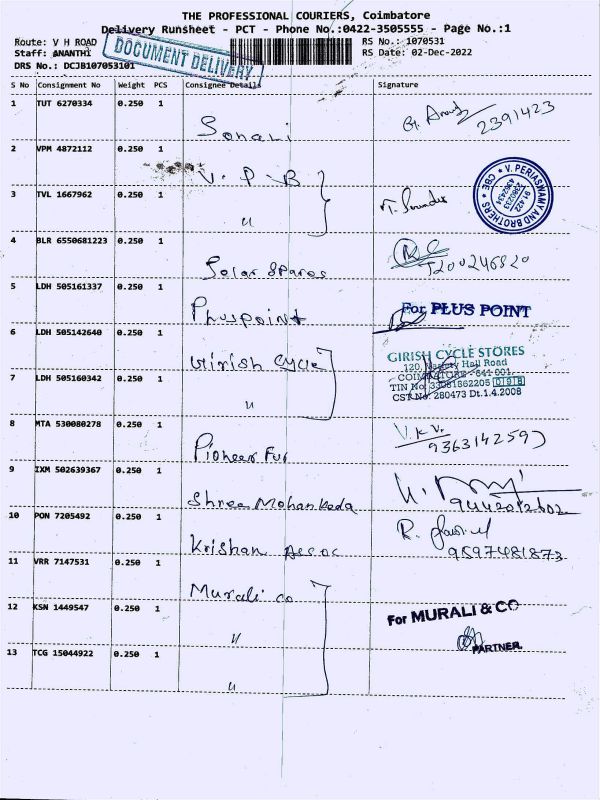 THE PROFESSIONAL COURIERS, Coimbatore
Delivery Runsheet - PCT - Phone No.:0422-3505555 - Page No.:1
Route: V H ROAD
RS No.: 1070531
Staff: ANANTHI
RS Date: 02-Dec-2022
DRS No.: DCJB107053101
DOCUMENT DELIVERY
S No Consignment No Weight PCS Consignee Details Signature
1 TUT 6270334 0.250 1 Sonali 2391423
2 VPM 4872112 0.250 1 V. P. B
V. PERIASWAMY AND BROTHERS
CBE
3 TVL 1667962 0.250 1 "
4 BLR 6550681223 0.250 1 Solar Spares
5 LDH 505161337 0.250 1 Pluspoint For PLUS POINT
6 LDH 505142640 0.250 1 Girish Cycle
GIRISH CYCLE STORES
120, Variety Hall Road
COIMBATORE - 641 001.
TIN No. 33081862205
CST No. 280473 Dt.1.4.2008
7 LDH 505160342 0.250 1 "
8 MTA 530080278 0.250 1 Pioneer Fur V.K.V. 9363142597
9 IXM 502639367 0.250 1 Shree Mohan Keda
10 PON 7205492 0.250 1 Krishan Assoc 9597481873
11 VRR 7147531 0.250 1 Murali co
12 KSN 1449547 0.250 1 " For MURALI & CO
PARTNER.
13 TCG 15044922 0.250 1 "